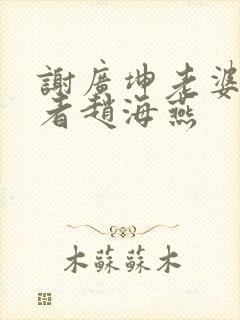 謝廣坤老婆
者趙海燕
木蘇蘇木